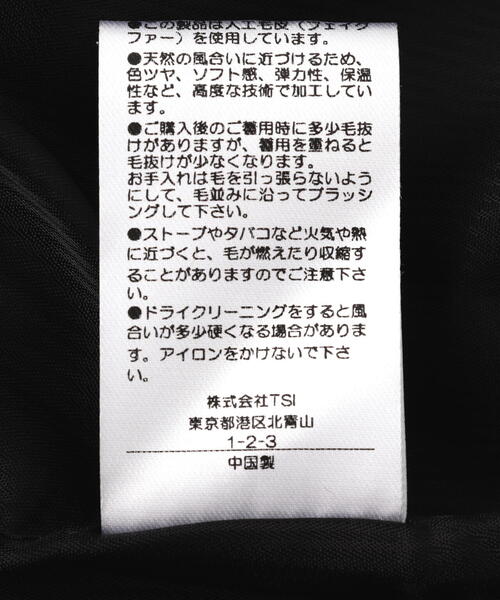 ●この製品は人工毛皮（フェイク
ファー）を使用しています。
●天然の風合いに近づけるため、
色ツヤ、ソフト感、弾力性、保温
性など、高度な技術で加工してい
ます。
●ご購入後のご着用時に多少毛抜
けがありますが、着用を重ねると
毛抜けが少なくなります。
お手入れは毛を引っ張らないよう
にして、毛並みに沿ってブラッシ
ングして下さい。
●ストーブやタバコなど火気や熱
に近づくと、毛が燃えたり収縮す
ることがありますのでご注意下さ
い。
●ドライクリーニングをすると風
合いが多少硬くなる場合がありま
す。アイロンをかけないで下さ
い。
株式会社TSI
東京都港区北青山
1-2-3
中国製